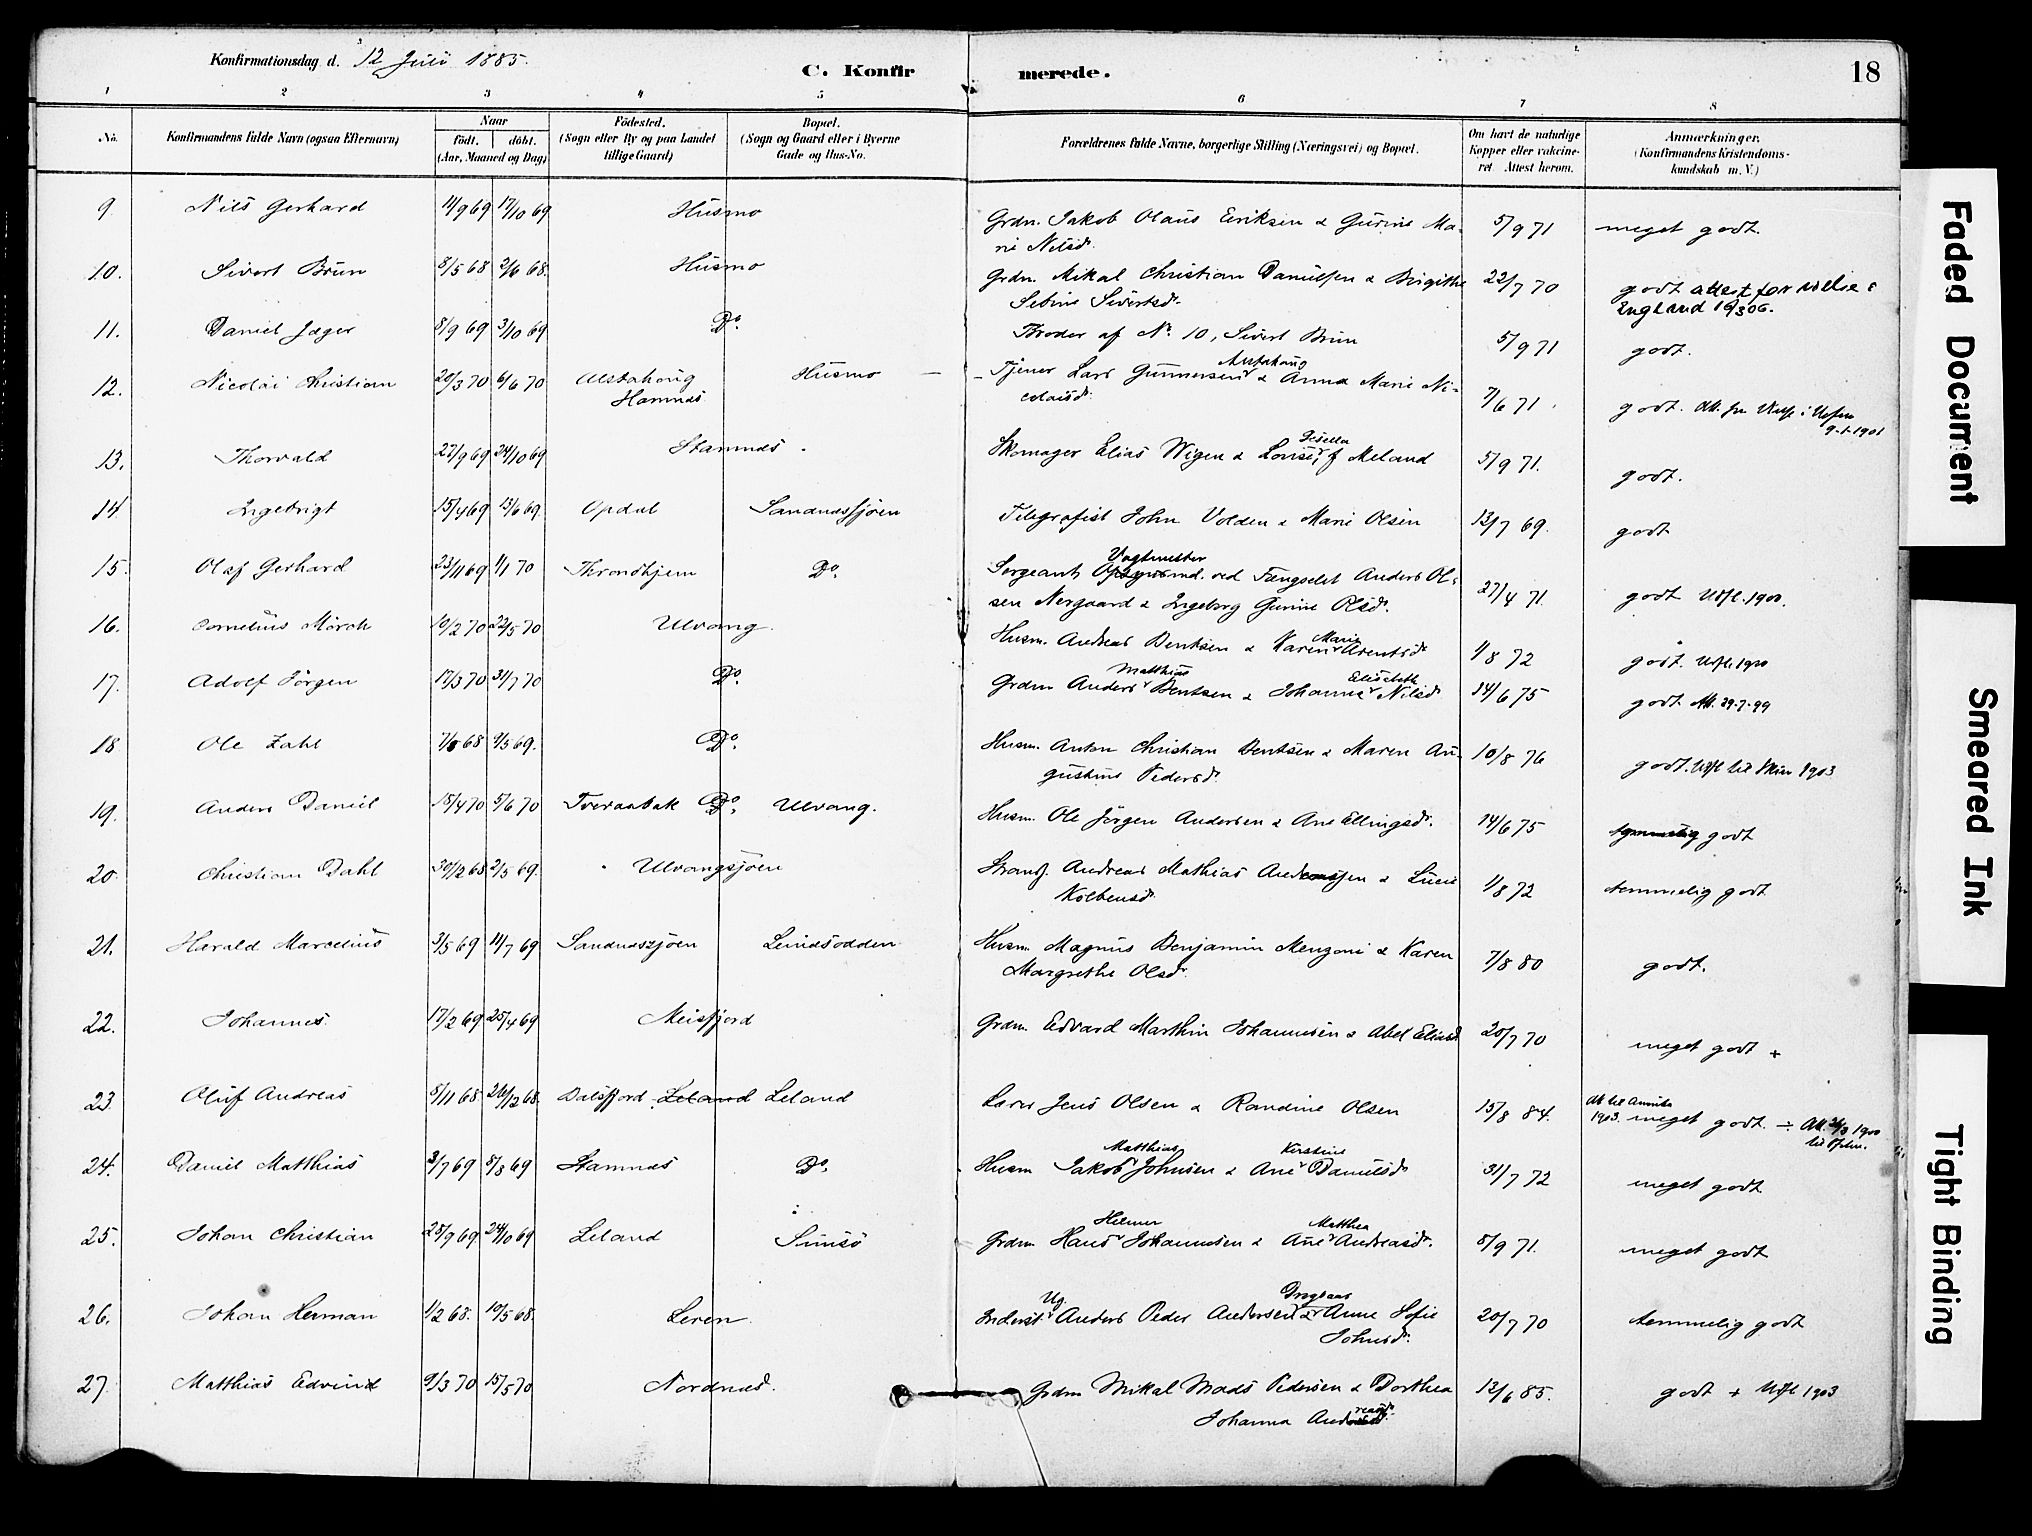 Konfirmationsdag d. 12 Juli 1885.
C. Konfirmerede.
18
1 2 3 4 5 6 7 8
No. Konfirmandens fulde Navn (ogsaa Efternavn) Naar födt. döbt. (Aar, Maaned og Dag) Födested. (Sogn eller By og paa Landet tillige Gaard) Bopæl. (Sogn og Gaard eller i Byerne Gade og Hus-No. Forældrenes fulde Navne, borgerlige Stilling (Næringsvei) og Bopæl. Om havt de naturlige Kopper eller vakcineret. Attest herom. Anmærkninger. (Konfirmandens Kristendomskundskab m. V.)
9. Nils Gerhard 11/9 69 17/10 69 Husmo Grdm. Jakob Olaus Eeriksen & Gurine Ma- 5/9 71 meget godt.
rie Nilsdr.
10. Sivert Brun 8/5 68 2/6 68. Husmo Grdm. Mikal Christian Danielsen & Birgithe 22/7 70 godt attest for vielse i
Sebine Sivertsdr. England
11. Daniel Jæger 8/9 69 3/10 69 Do. Broder af No. 10, Sivert Brun 5/9 71 godt.
12. Nicolai Christian 20/3 70 6/6 70 Alstahoug Husmo Tjener Lars Gunnersen Alstahoug & Anna Marie Ni- 7/6 71 godt.
Hamnæs colaisdr. 9-1-1901
13. Thorvald 22/9 69 24/10 69 Stamnæs. Skomager Elias Wigen & Louise, f. Meland 5/9 71. godt.
14 Ingebrigt 15/4 69 13/6 69. Opdal Sandnæssjøen Telegrafist John Volden & Marie Olsen 13/7 69. godt
15. Olaf Gerhard 23/11 69 1/1 70 Throndhjem Do. Sergeant, Vagtmester ved Fængselet Anders Ol- 27/4 71. godt Utfl. 1900.
sen Nergaard & Ingeborg Gurine Olsdr.
16. Cornelius Mörch 10/2 70 22/5 70 Ulvang. Husm. Andreas Bentsen & Karen Marie Arentsdr 1/8 72 godt. Utfl. 1900
17. Adolf Jörgen 17/3 70 31/7 70 Do. Grdm Anders Matthias Bentsen & Johanna Elisabeth Nilsdr 14/6 75 godt Att. 29-7-99
18 Ole Zahl 68 9/5 69. Do. Husm. Anton Christian Bentsen & Maren Au- 10/8 76 godt. Utfl til 1903
gustine Pedersdr.
19. Anders Daniel 18/4 70 5/6 70 Tveraabak Do. Ulvang. Husm. Ole Jörgen Andersen & Ane Ellingsdr. 14/6 75 temmelig godt
20. Christian Dahl 30/12 68 2/5 69. Ulvangsjöen Strands. Andreas Mathias Andersen & Lucie 1/8 72 temmelig godt
Kolbensdr.
21. Harald Marcelius 3/5 69 11/7 69 Sandnæssjöen Leinesodden Husm. Magnus Benjamin Menzoni & Karen 7/8 80 godt.
Margrethe Olsdr.
22. Johannes. 17/2 69 25/4 69 Meisfjord Grdm. Edvard Marthin Johannesen & Abel Eliasd 20/7 70 meget godt +
23. Oluf Andreas 8/11 68 26/12 68. Dalsfjord Leland Leland Lars Jens Olsen & Randine Olsen 15/8 84. Att til Amerika 1903. meget godt.
24. Daniel Matthias 3/7 69 8/8 69 Stamnæs Do. Husm Jakob Matthias Johnsen & Ane Kirstine Danielsdr 31/7 72 meget godt
25. Johan Christian 28/9 69 24/10 69 Leland Sunsö Grdm. Hans Helmer Johannesen & Ane Matthea Andreasdr. 8/9 71. meget godt
26. Johan Herman 1/2 68. 10/5 68. Leren. Inderst Ug. Anders Peder Andersen & Anne Sofie 20/7 70 temmelig godt
Johnsdr.
27. Matthias Edvind 9/3 70 15/5 70 Nordnæs. Grdm Mikal Mads Pedersen & Dorthea 12/6 85. godt + Utfl 1903
Johanna Andreasdr.
Faded Document
Smeared Ink
Tight Binding